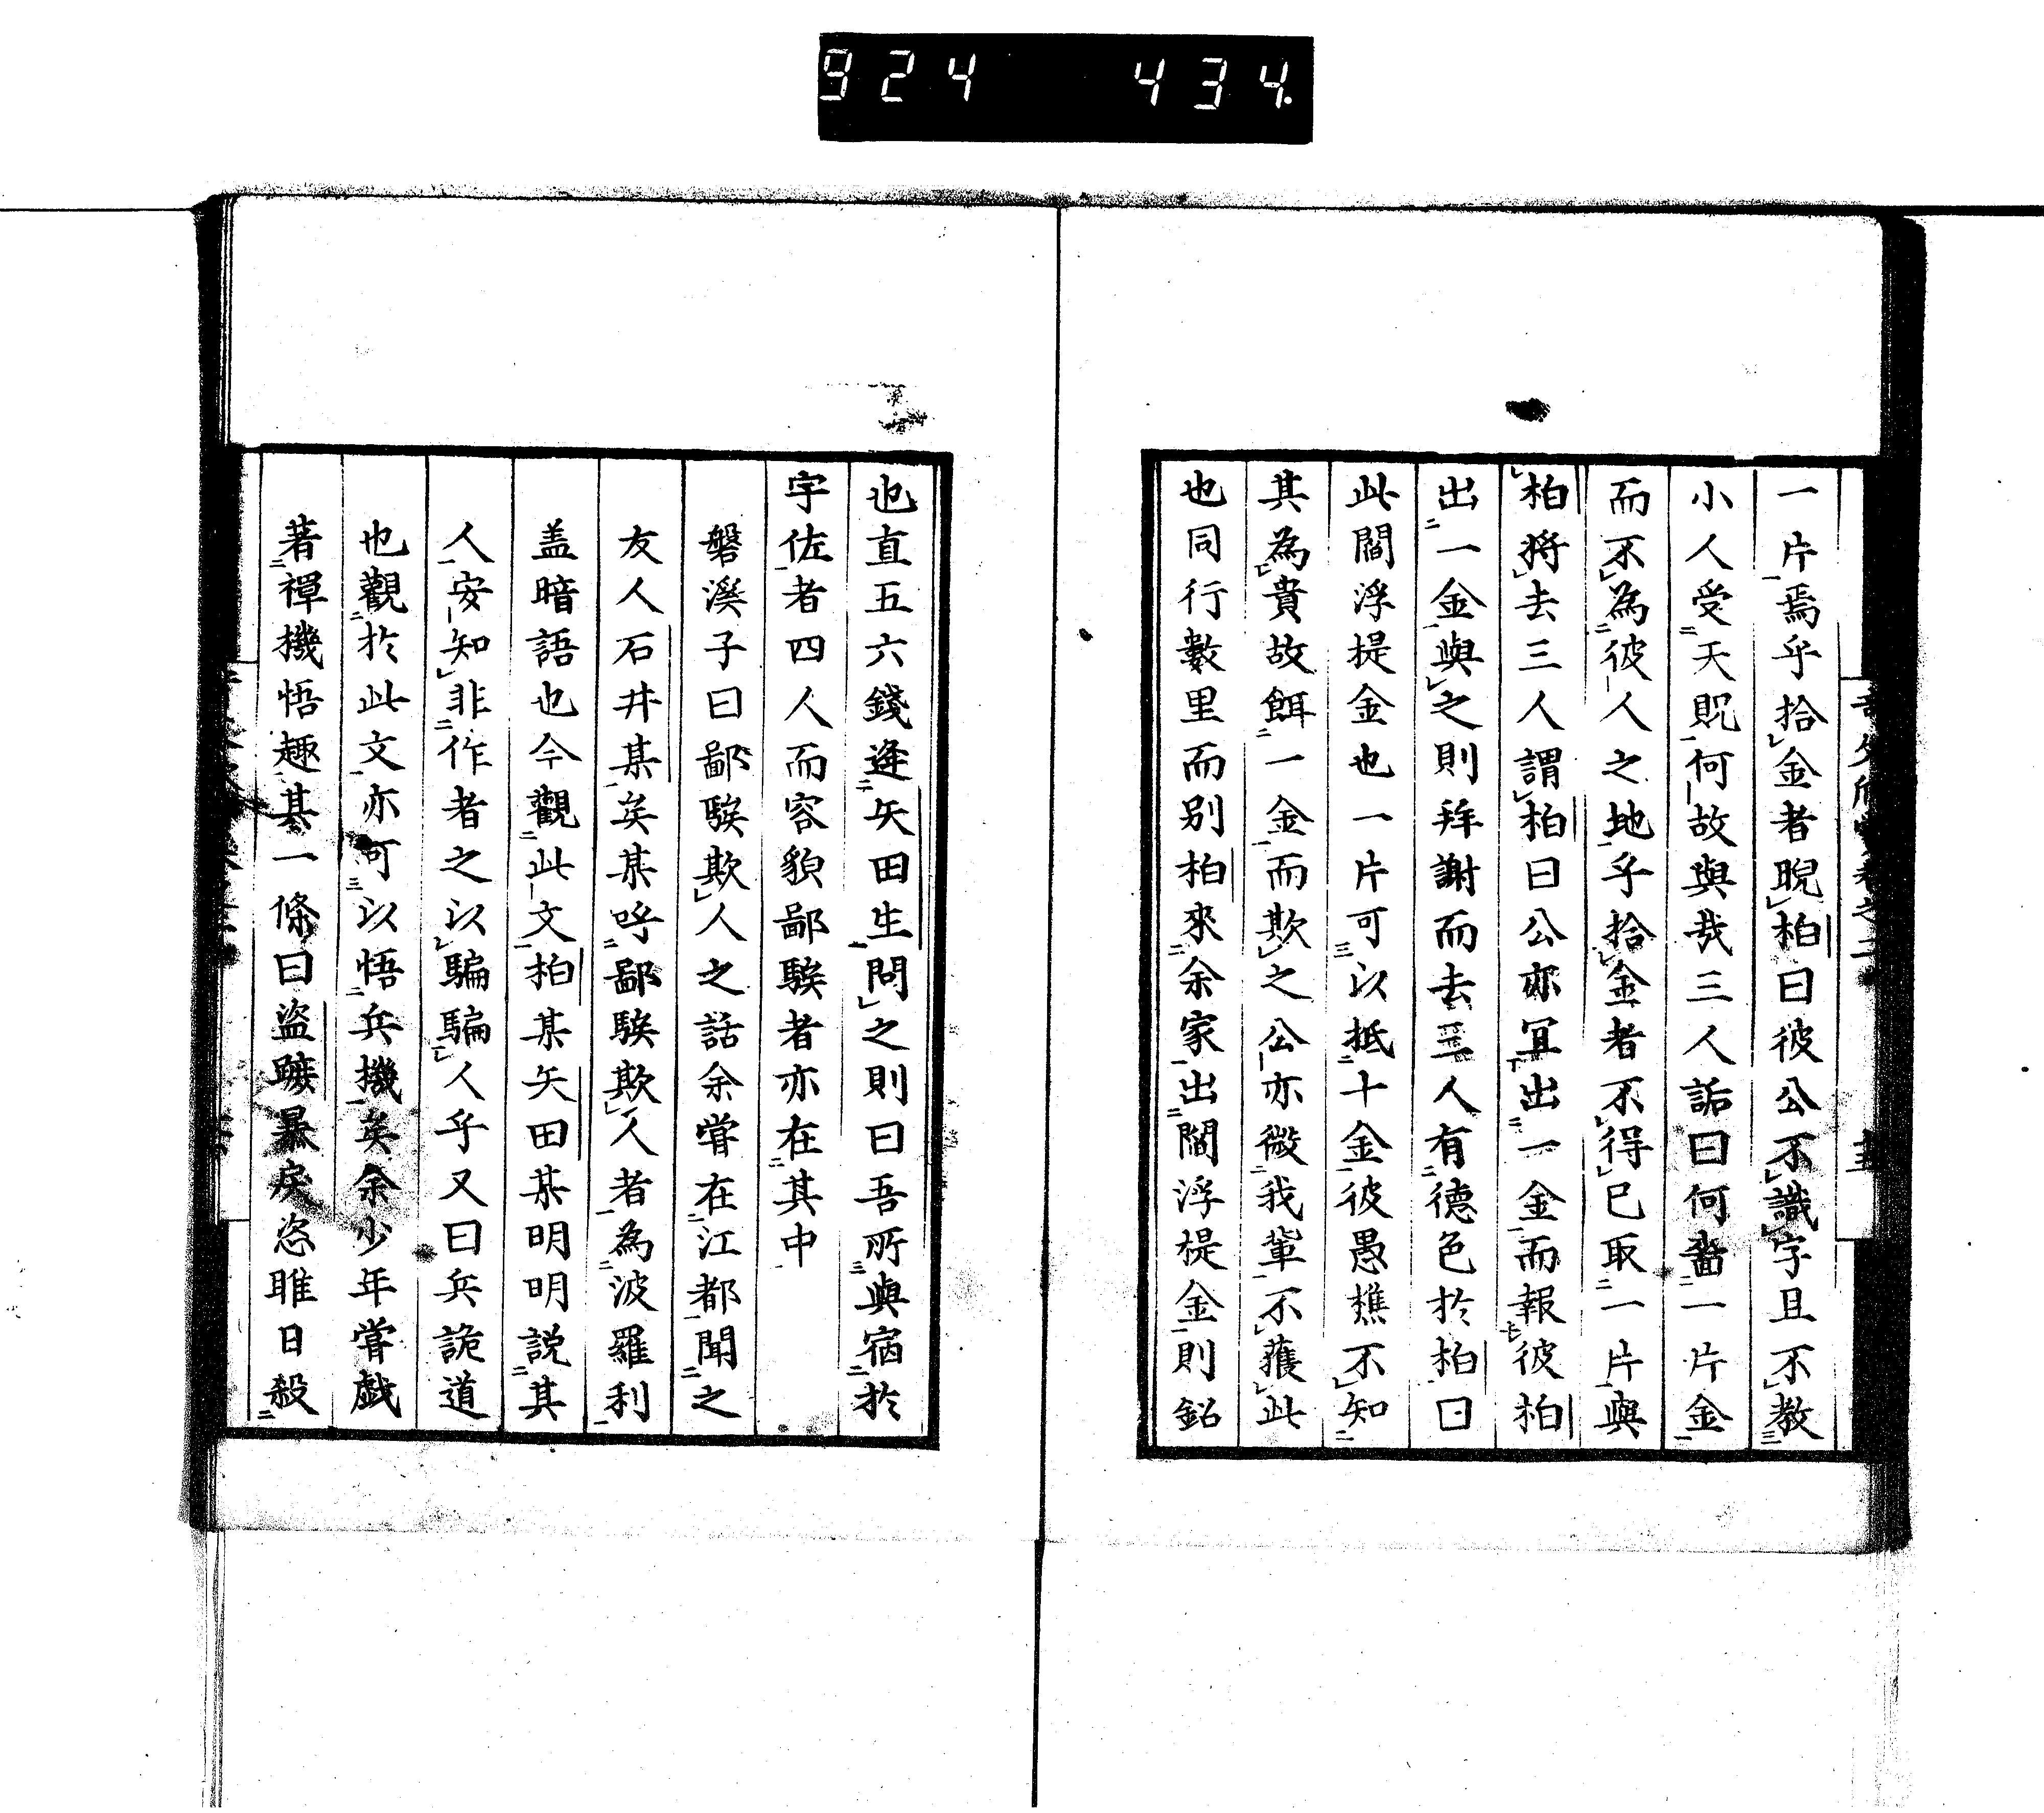 924 434.
一片焉乎拾金者睨柏曰彼公不識字且不教
小人受天貺何故與哉三人詬曰何嗇一片金
而不為彼人之地乎拾金者不得已取一片與
柏將去三人謂柏曰公亦宜出一金而報彼柏
出一金與之則拜謝而去三人有德色於柏曰
此閻浮提金也一片可以抵十金彼愚樵不知
其為貴故餌一金而欺之公亦微我輩不獲此
也同行數里而別柏來余家出閻浮提金則鉛
也直五六錢逢矢田生問之則曰吾所與宿於
宇佐者四人而容貌鄙騃者亦在其中
磐溪子曰鄙騃欺人之話余嘗在江都聞之
友人石井某矣某呼鄙騃欺人者為波羅利
盖暗語也今觀此文柏某矢田某明明説其
人安知非作者之以騙騙人乎又曰兵詭道
也觀於此文亦可以悟兵機矣余少年嘗戯
著禪機悟趣其一條曰盜蹠暴戾恣睢日殺